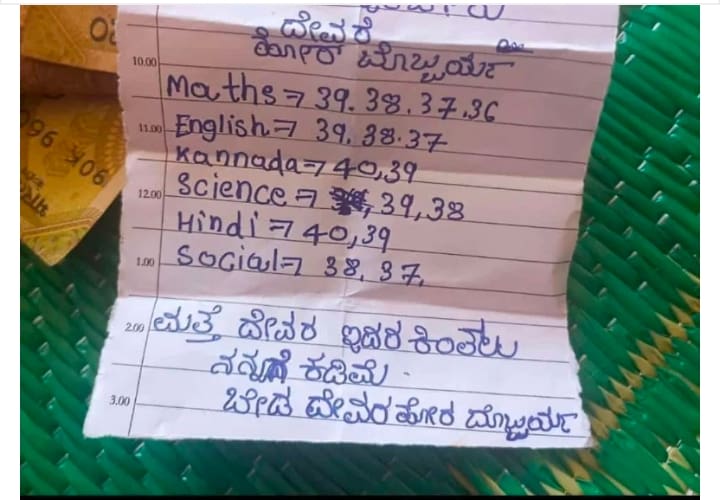 ದೇವರೆ
ಹೋರ ಬೊಬ್ಬರ್ಯ
10.00
Maths=7 39.38.37.36
11.00 English=7 39.38.37
Kannada=7 40,39
12.00 Science=7 39,38
Hindi=7 40,39
1.00 Social=7 38,37,
2.00 ಮತ್ತೆ ದೇವರ ಇದರ ಕಿಂತಲು
ನನ್ನಗೆ ಕಡಿಮೆ.
3.00 ಬೇಡ ದೇವರ ಹೋರ ಬೊಬ್ಬರ್ಯ